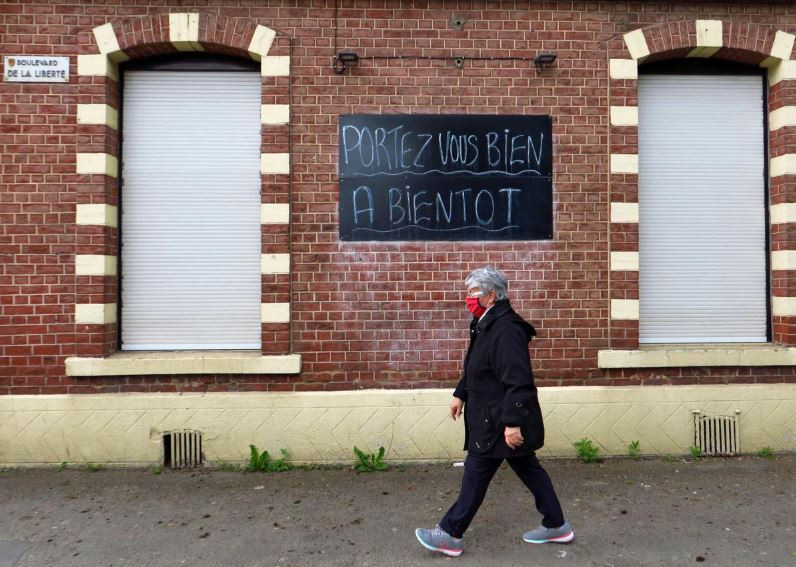 BOULEVARD
DE LA LIBERTÉ
PORTEZ VOUS BIEN
A BiENTOT